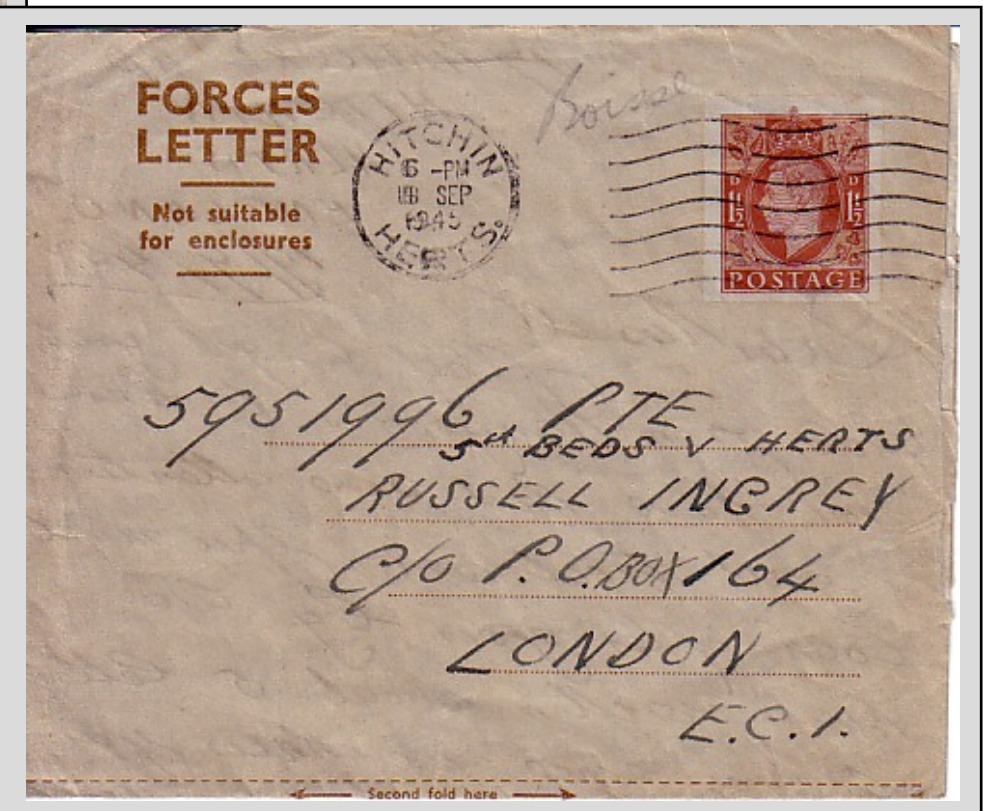 FORCES
LETTER
Not suitable
for enclosures
HITCHIN
6 - PM
SEP
1945
HERTS.
D D
1½ 1½
POSTAGE
5951996 PTE
5th BEDS & HERTS
RUSSELL INGREY
C/O P.O. BOX 164
LONDON
E.C.1.
Second fold here